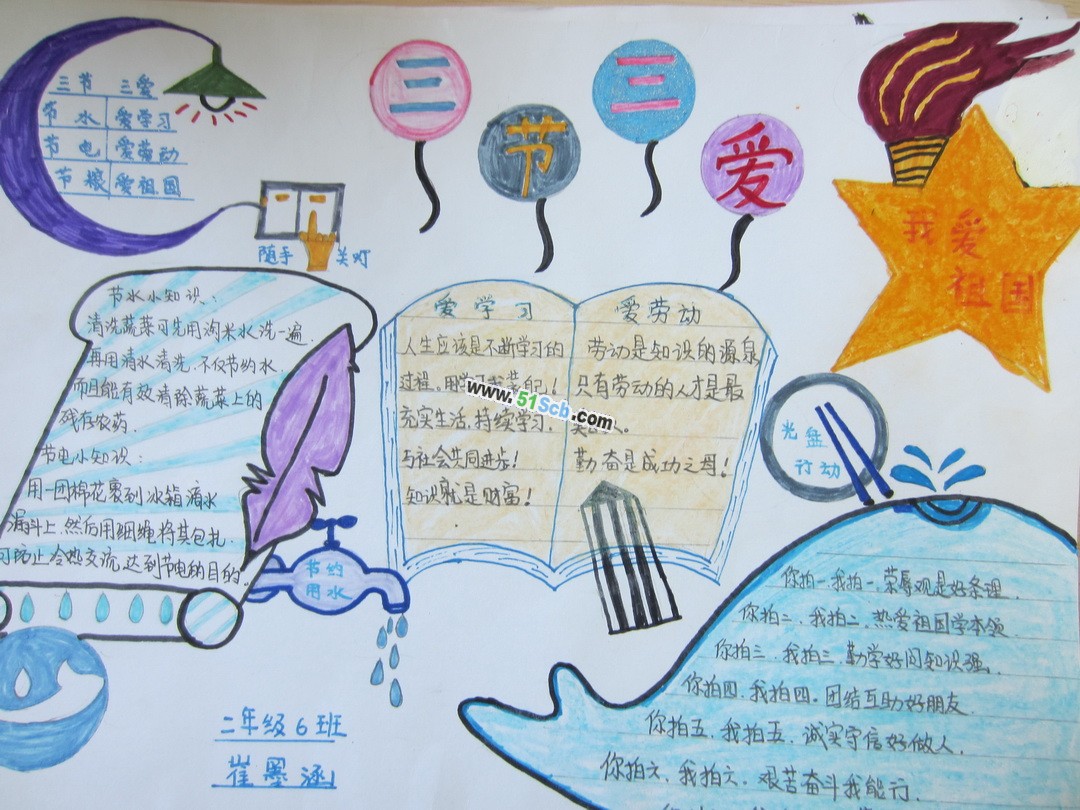 三节 三爱
节水 爱学习
节电 爱劳动
节粮 爱祖国
随手 关灯
三 节 三 爱
我爱
祖国
节水小知识：
清洗蔬菜可先用淘米水洗一遍.
再用清水清洗,不仅节约水,
而且能有效清除蔬菜上的
残存农药.
节电小知识：
用一团棉花裹到冰箱滴水
漏斗上,然后用细绳将其包扎.
可防止冷热交流,达到节电的目的.
节约
用水
爱学习
人生应该是不断学习的
过程,用学习
充实生活,持续学习,
与社会共同进步!
知识就是财富!
爱劳动
劳动是知识的源泉
只有劳动的人才是最
人。
勤奋是成功之母!
www.51Scb.com
光盘
行动
你拍一,我拍一,荣辱观是好条理.
你拍二,我拍二,热爱祖国学本领.
你拍三,我拍三,勤学好问知识强.
你拍四,我拍四,团结互助好朋友.
你拍五,我拍五,诚实守信好做人.
你拍六,我拍六,艰苦奋斗我能行.
二年级6班
崔墨涵